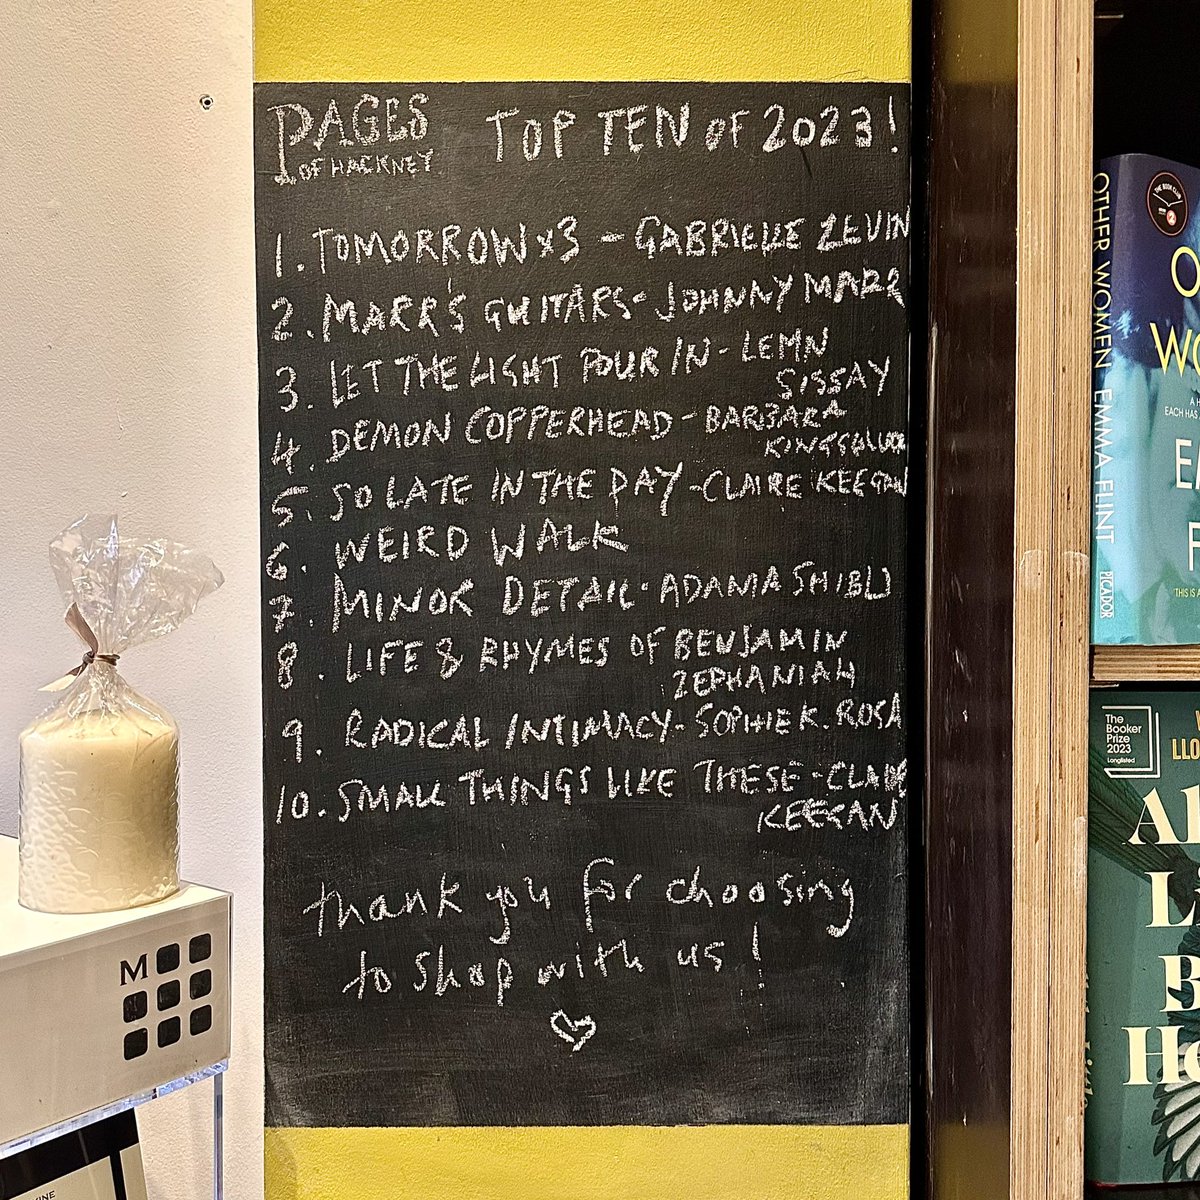 PAGES
OF HACKNEY
TOP TEN OF 2023!
1. TOMORROW x3 - GABRIELLE ZEVIN
2. MARR'S GUITARS - JOHNNY MARR
3. LET THE LIGHT POUR IN - LEMN
SISSAY
4. DEMON COPPERHEAD - BARBARA
KINGSOLVER
5. SO LATE IN THE DAY - CLAIRE KEEGAN
6. WEIRD WALK
7. MINOR DETAIL - ADANIA SHIBLI
8. LIFE & RHYMES OF BENJAMIN
ZEPHANIAH
9. RADICAL INTIMACY - SOPHIE K. ROSA
10. SMALL THINGS LIKE THESE - CLAIRE
KEEGAN
thank you for choosing
to shop with us!
M
OTHER WOMEN EMMA FLINT
PICADOR
THE BOOK CLUB
The
Booker
Prize
2023
Longlisted